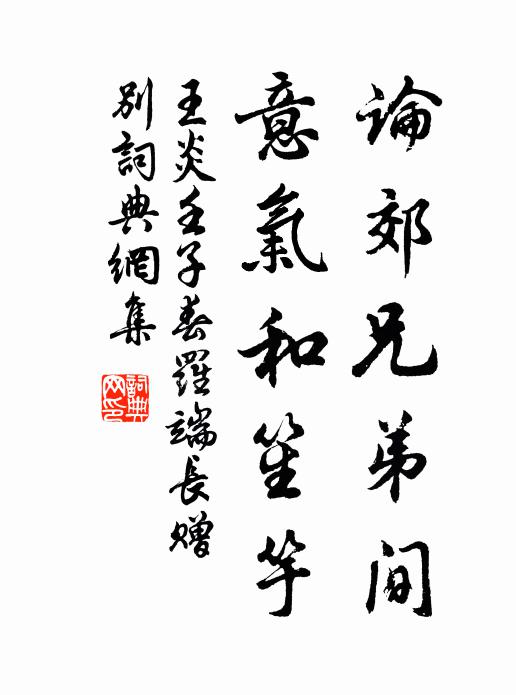 論郊兄弟間
意氣和笙竽
王炎壬子春羅端長贈
別詞典網集
詞典网印